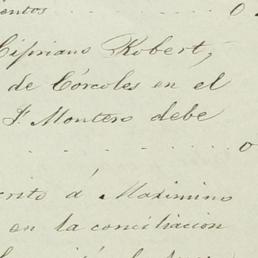 entos . . . . 0
Cipriano Robert,
de Córcoles en el
F. Montero debe
. . . . . 0
crito á Maximino
en la conciliacion